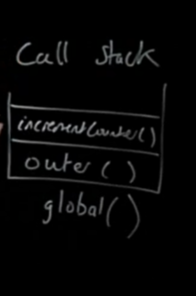 Call Stack
incrementCounter()
outer()
global()